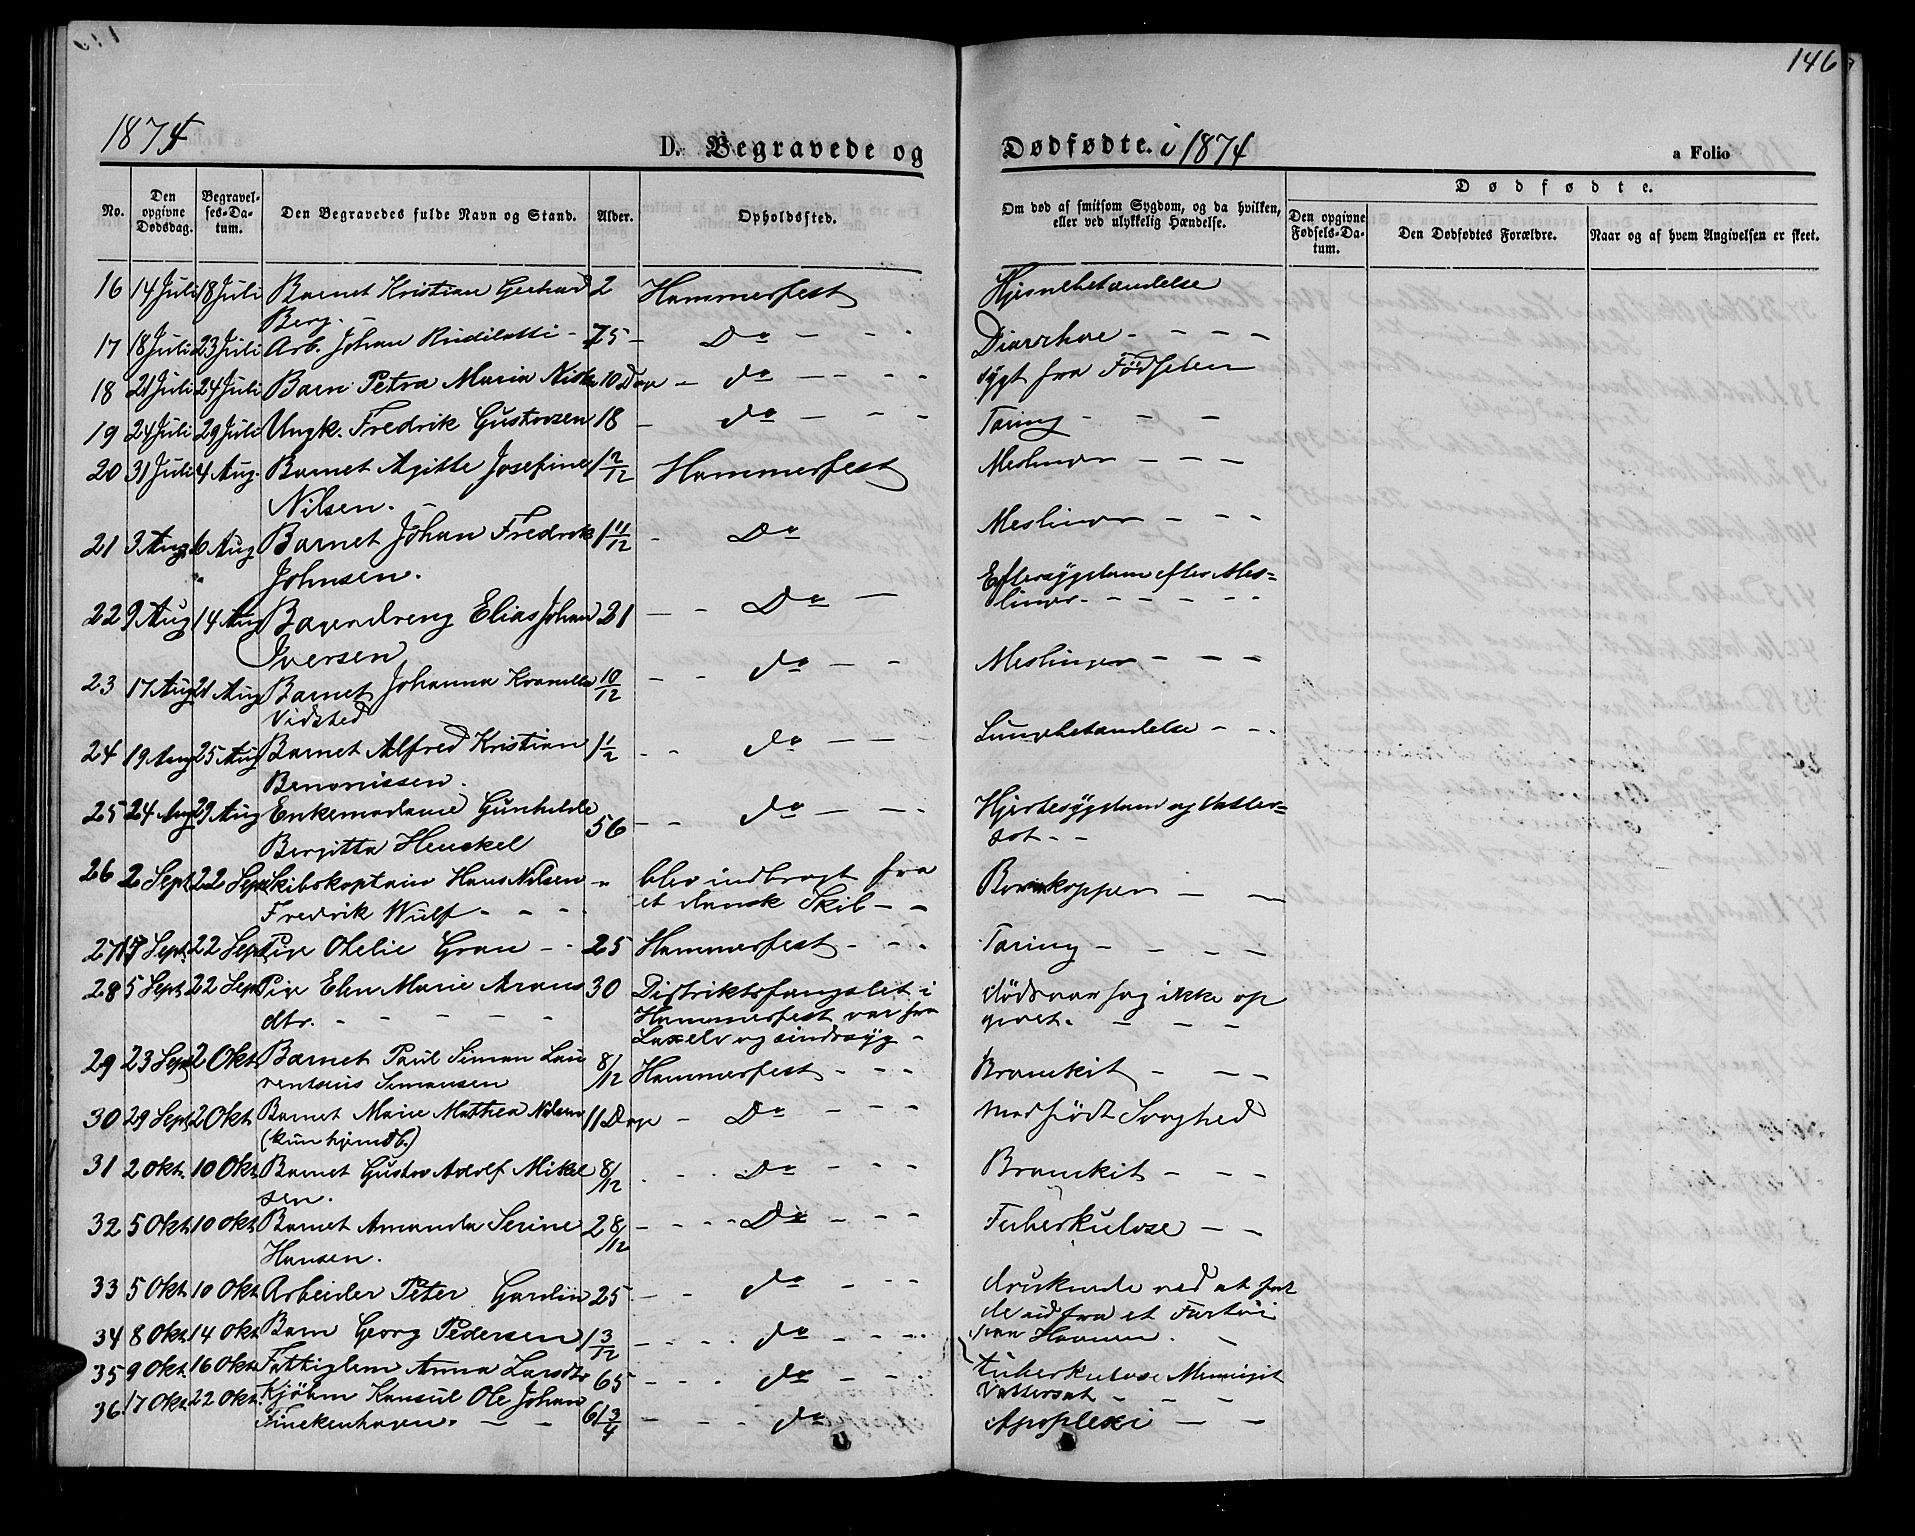 146
1874
D. Begravede og Dødfødte. i 1874
a Folio
No.
Den opgivne Dødsdag.
Begravelses-Datum.
Den Begravedes fulde Navn og Stand.
Alder.
Opholdssted.
Om død af smitsom Sygdom, og da hvilken, eller ved ulykkelig Hændelse.
Dødfødte.
Den opgivne Fødsels-Datum.
Den Dødfødtes Forældre.
Naar og af hvem Angivelsen er skeet.
16 14 Juli 18 Juli Barnet Kristian Gerhard 2 Hammerfest Hjernebetændelse
Berg. -
17 18 Juli 23 Juli Arb. Johan - 75 - Do - - - Diarrhoe - - - -
18 21 Juli 24 Juli Barn Petra Maria 10 Dage - do - - - - sygt fra Födselen
19 24 Juli 29 Juli Ungk. Fredrik Gustavsen 18 - do - - - Tæring - - -
20 31 Juli 4 Aug. Barnet Agitte Josefine 1 2/12 Hammerfest Meslinger - - -
Nilsen. -
21 3 Aug 6 Aug Barnet Johan Fredrik 1 11/12 - Do Meslinger - - -
Johnsen.
22 9 Aug 14 Aug Bagerdreng Elias Johan 21 - - Do - Eftersygdom efter Mes=
Iversen linger - - - - - -
23 17 Aug 21 Aug Barnet Johanna 10/12 - - do - - Meslinger - - -
Vidsted
24 19 Aug 25 Aug Barnet Alfred Kristian 1 1/2 - - do - - Lungebetændelse - - -
Benonissen.
25 24 Aug 29 Aug Enkemadame Gunhilde 56 - - do - - - Hjertesygdom og Vatter=
Bergitta Henckel sot - -
26 2 Sept 22 Sept Skibskaptain Hans Nilsen " blev indbragt fra Barnkopper - -
Fredrik Wulf - - - - et dansk Skib - -
27 17 Sept. 22 Sept Pige Ohelie Gran - - 25 Hammerfest - - - Tæring - - - -
28 5 Sept 22 Sept Pige Elen Marie Arons 30 Distriktsfængslet i dödsaarsag ikke op
dtr. - - - - - Hammerfest var fra givet. - - -
Laxelv og sindssyg -
29 23 Sept 2 Okt Barnet Paul Simon Lau 8/12 Hammerfest - - - Bronkit - - -
rentsius Simonsen
30 29 Sept 2 Okt. Barnet Marie Mathea Nilsen 11 Dage - Do - - - medfödt Svaghed
(kun hjemdb.)
31 2 Okt. 10 Okt. Barnet Gustav Adolf Mikel 8/12 - - - Do - - - Bronkit - - -
sen.
32 5 Okt. 10 Okt Barnet Amanda Serine 2 8/12 - - - Do - - - Tuberkulose - -
Hansen.
33 5 Okt. 10 Okt Arbeider Peter 25 - - do - - - druknede ved at fal
de ud fra et Fartöi
34 8 Okt. 14 Okt Barn Georg Pedersen 1 3/12 - - - do - - - paa Havnen. -
35 9 Okt. 16 Okt Fattiglem Anna Larsdtr 65 - - - do - - tuberkulose
Vattersot - - -
36. 17 Okt. 22 Okt. Kjöbm Konsul Ole Johan 61 3/4 - - - do - Apoplexi - -
Finckenhagen. - -